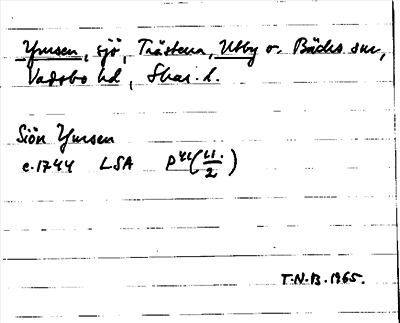 Ymsen, sjö, Trästena, Utby o. Bäcks snr,
Vadsbo hd, Skar. l.
Siön Ymsen
c. 1744 LSA P 44 (11./2)
T.N.B. 1965.